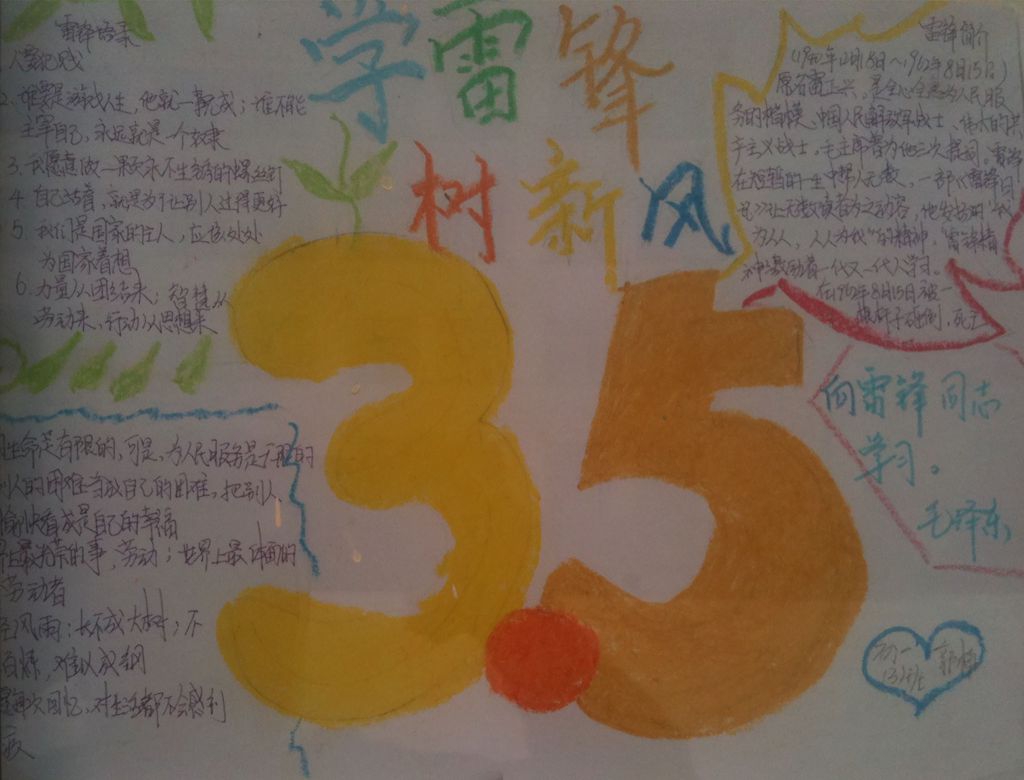 学雷锋
树新风
3.5
雷锋语录
人要记
2. 谁要是游戏人生,他就一事无成;谁不能
主宰自己,永远就是一个奴隶
3. 我愿意做一颗永不生锈的螺丝钉
4. 自己活着,就是为了让别人过得更好
5. 我们是国家的主人,应该处处
为国家着想
6. 力量从团结来,智慧从
劳动来,行动从思想来
生命是有限的,可是,为人民服务是无限的
别人的困难当成自己的困难,把别人
愉快看成是自己的幸福
上最光荣的事,劳动;世界上最体面的
劳动者
经风雨:长不成大树;不
百炼,难以成钢
回忆,对生活都不会感到
雷锋简介
(1940年12月18日~1962年8月15日)
原名雷正兴,是全心全意为人民服
务的楷模,中国人民解放军战士,伟大的共
产主义战士,毛主席曾为他三次提词。雷锋
在短暂的一生中帮人无数,一部《雷锋日
记》让无数读者为之动容,他发出的“我
为人人,人人为我”的精神。雷锋精
神激励着一代又一代人学习。
在1962年8月15日被一
根杆子砸倒,死亡
向雷锋同志
学习。
毛泽东
初一
13班